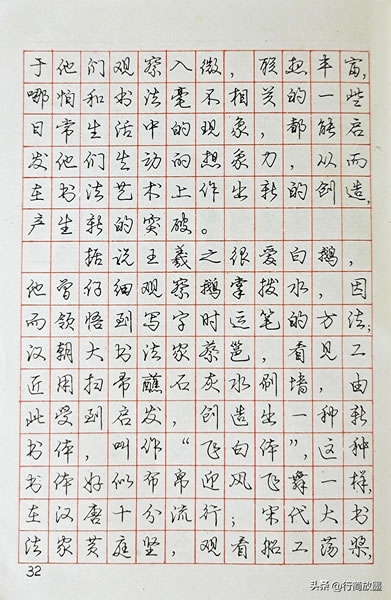 于他们观察入微，联想丰富，
哪怕和书法毫不相关的一些
日常生活中的现象，都能启
发他们生动的想象力，从而
在书法艺术上作出新的创造，
产生新的突破。
据说王羲之很爱白鹅，
他曾仔细观察鹅掌拨水，因
而领悟到写字时运笔的方法；
汉朝大书法家蔡邕，看见工
匠用扫帚蘸石灰水刷墙，由
此受到启发，创造出一种新
书体，叫作“飞白体”，这种
书体好似布帛迎风飞舞一样，
在汉唐十分流行；宋代大书
法家黄庭坚，观看船工荡桨，
32
头条@行尚放墨